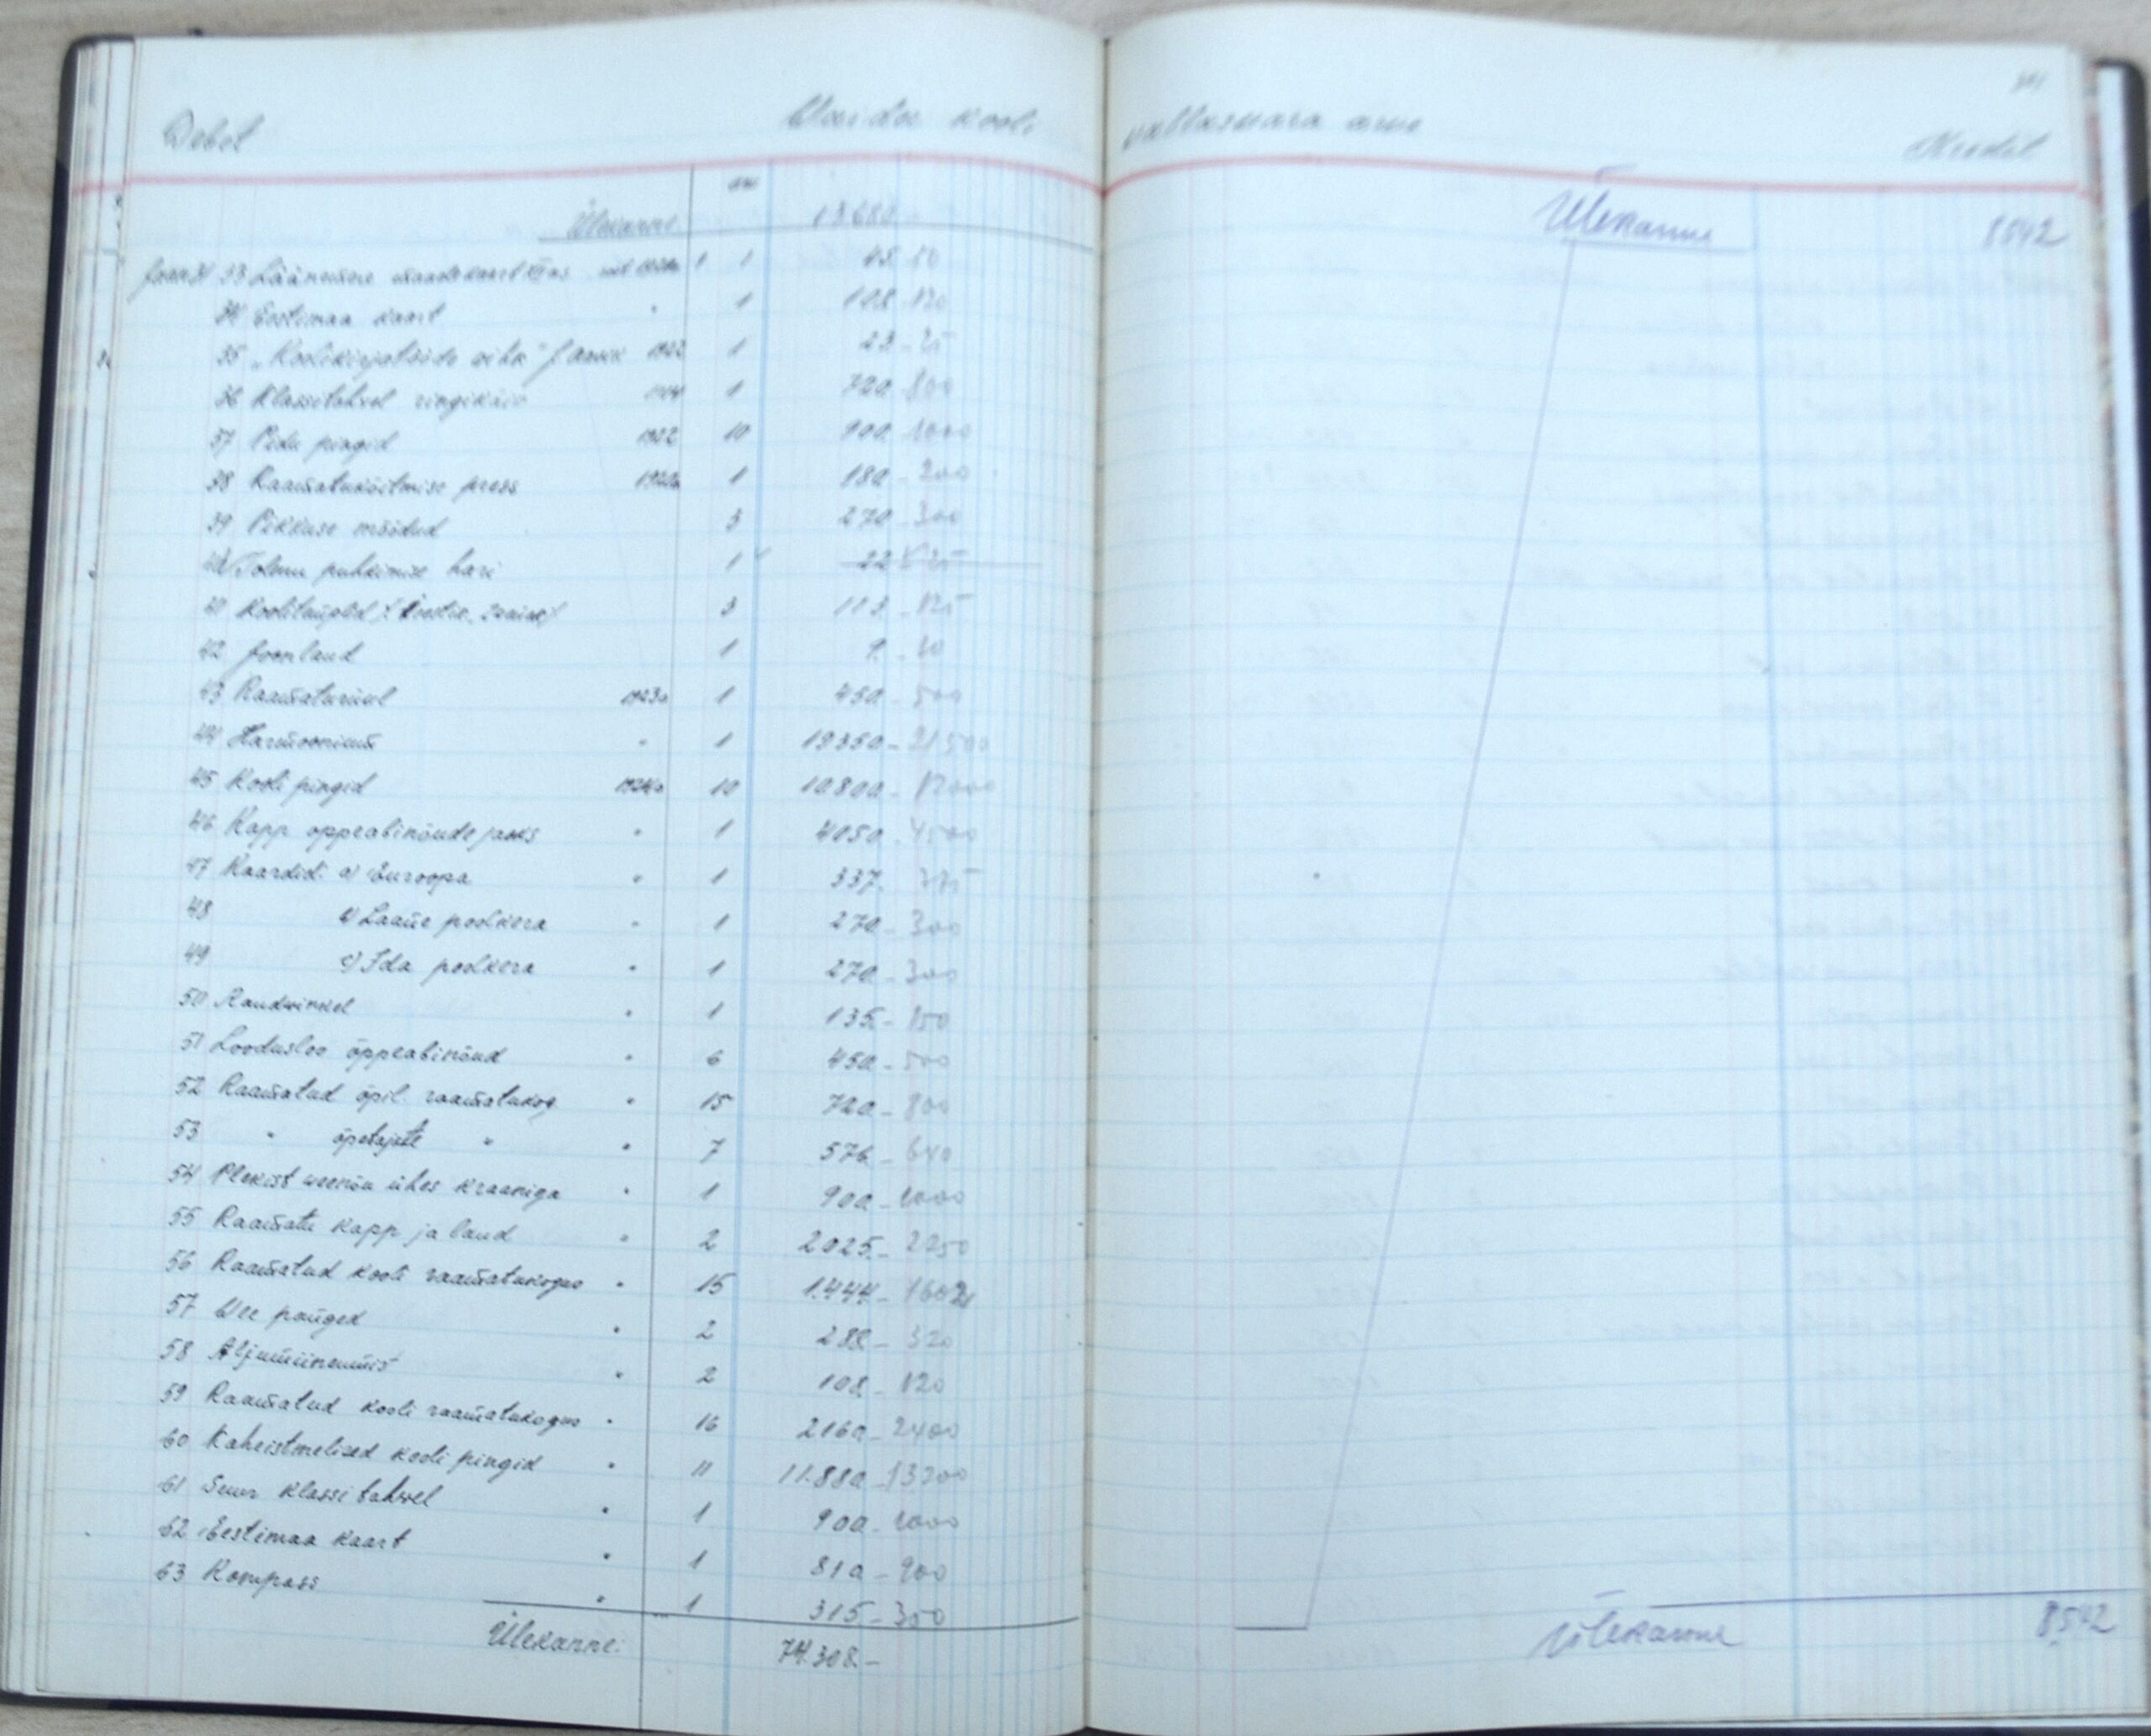 Debet kooli
Ülekanne 13680
33 Läänemere 1 1 45 50
34 Eestimaa kaart " 1 108 - 120
35 " 1922 1 23 - 25
36 Klassitahvel ringikäiv 1 720 - 800
37 Pidu pingid 1922 10 900 - 1000
38 Raamatuköitmise press 1922a 1 180 - 200
39 Pikkuse mõõdud 3 270 - 300
40 Tolmu puhkimise hari 1 22 25
41 Koolitemplid 3 113 - 125
42 Joonlaud 1 9. - 10
43 Raamaturiiul 1923a 1 450 - 500
44 Harmoonium " 1 19350 - 21500
45 Kooli pingid 1924a 10 10.800 - 12000
46 Kapp oppeabinõude jaoks " 1 4050 - 4500
47 Kaardid: a) Euroopa " 1 337. 375
48 b) Lääne poolkera " 1 270 - 300
49 c) Ida poolkera " 1 270 - 300
50 Raudwinkel " 1 135. - 150
51 Loodusloo õppeabinõud " 6 450 - 500
52 Raamatud õpil. raamatukog " 15 720 - 800
53 " õpetajate " " 7 576 - 640
54 Plekist weenõu ühes kraaniga " 1 900 - 1000
55 Raamatu kapp ja laud " 2 2025. - 2250
56 Raamatud kooli raamatukogus " 15 1.444. - 1602
57 Wee panged " 2 288 - 320
58 " 2 108. - 120
59 Raamatud kooli raamatukogus " 16 2160 - 2400
60 Kaheistmelised kooli pingid " 11 11.880 - 13200
61 Suur klassi tahwel " 1 900 - 1000
62 Eestimaa kaart " 1 810 - 900
63 Kompass " 1 315 - 350
Ülekanne: 74.308.-
warandus arve Kredit
Ülekanne 8542
Ülekanne 8542